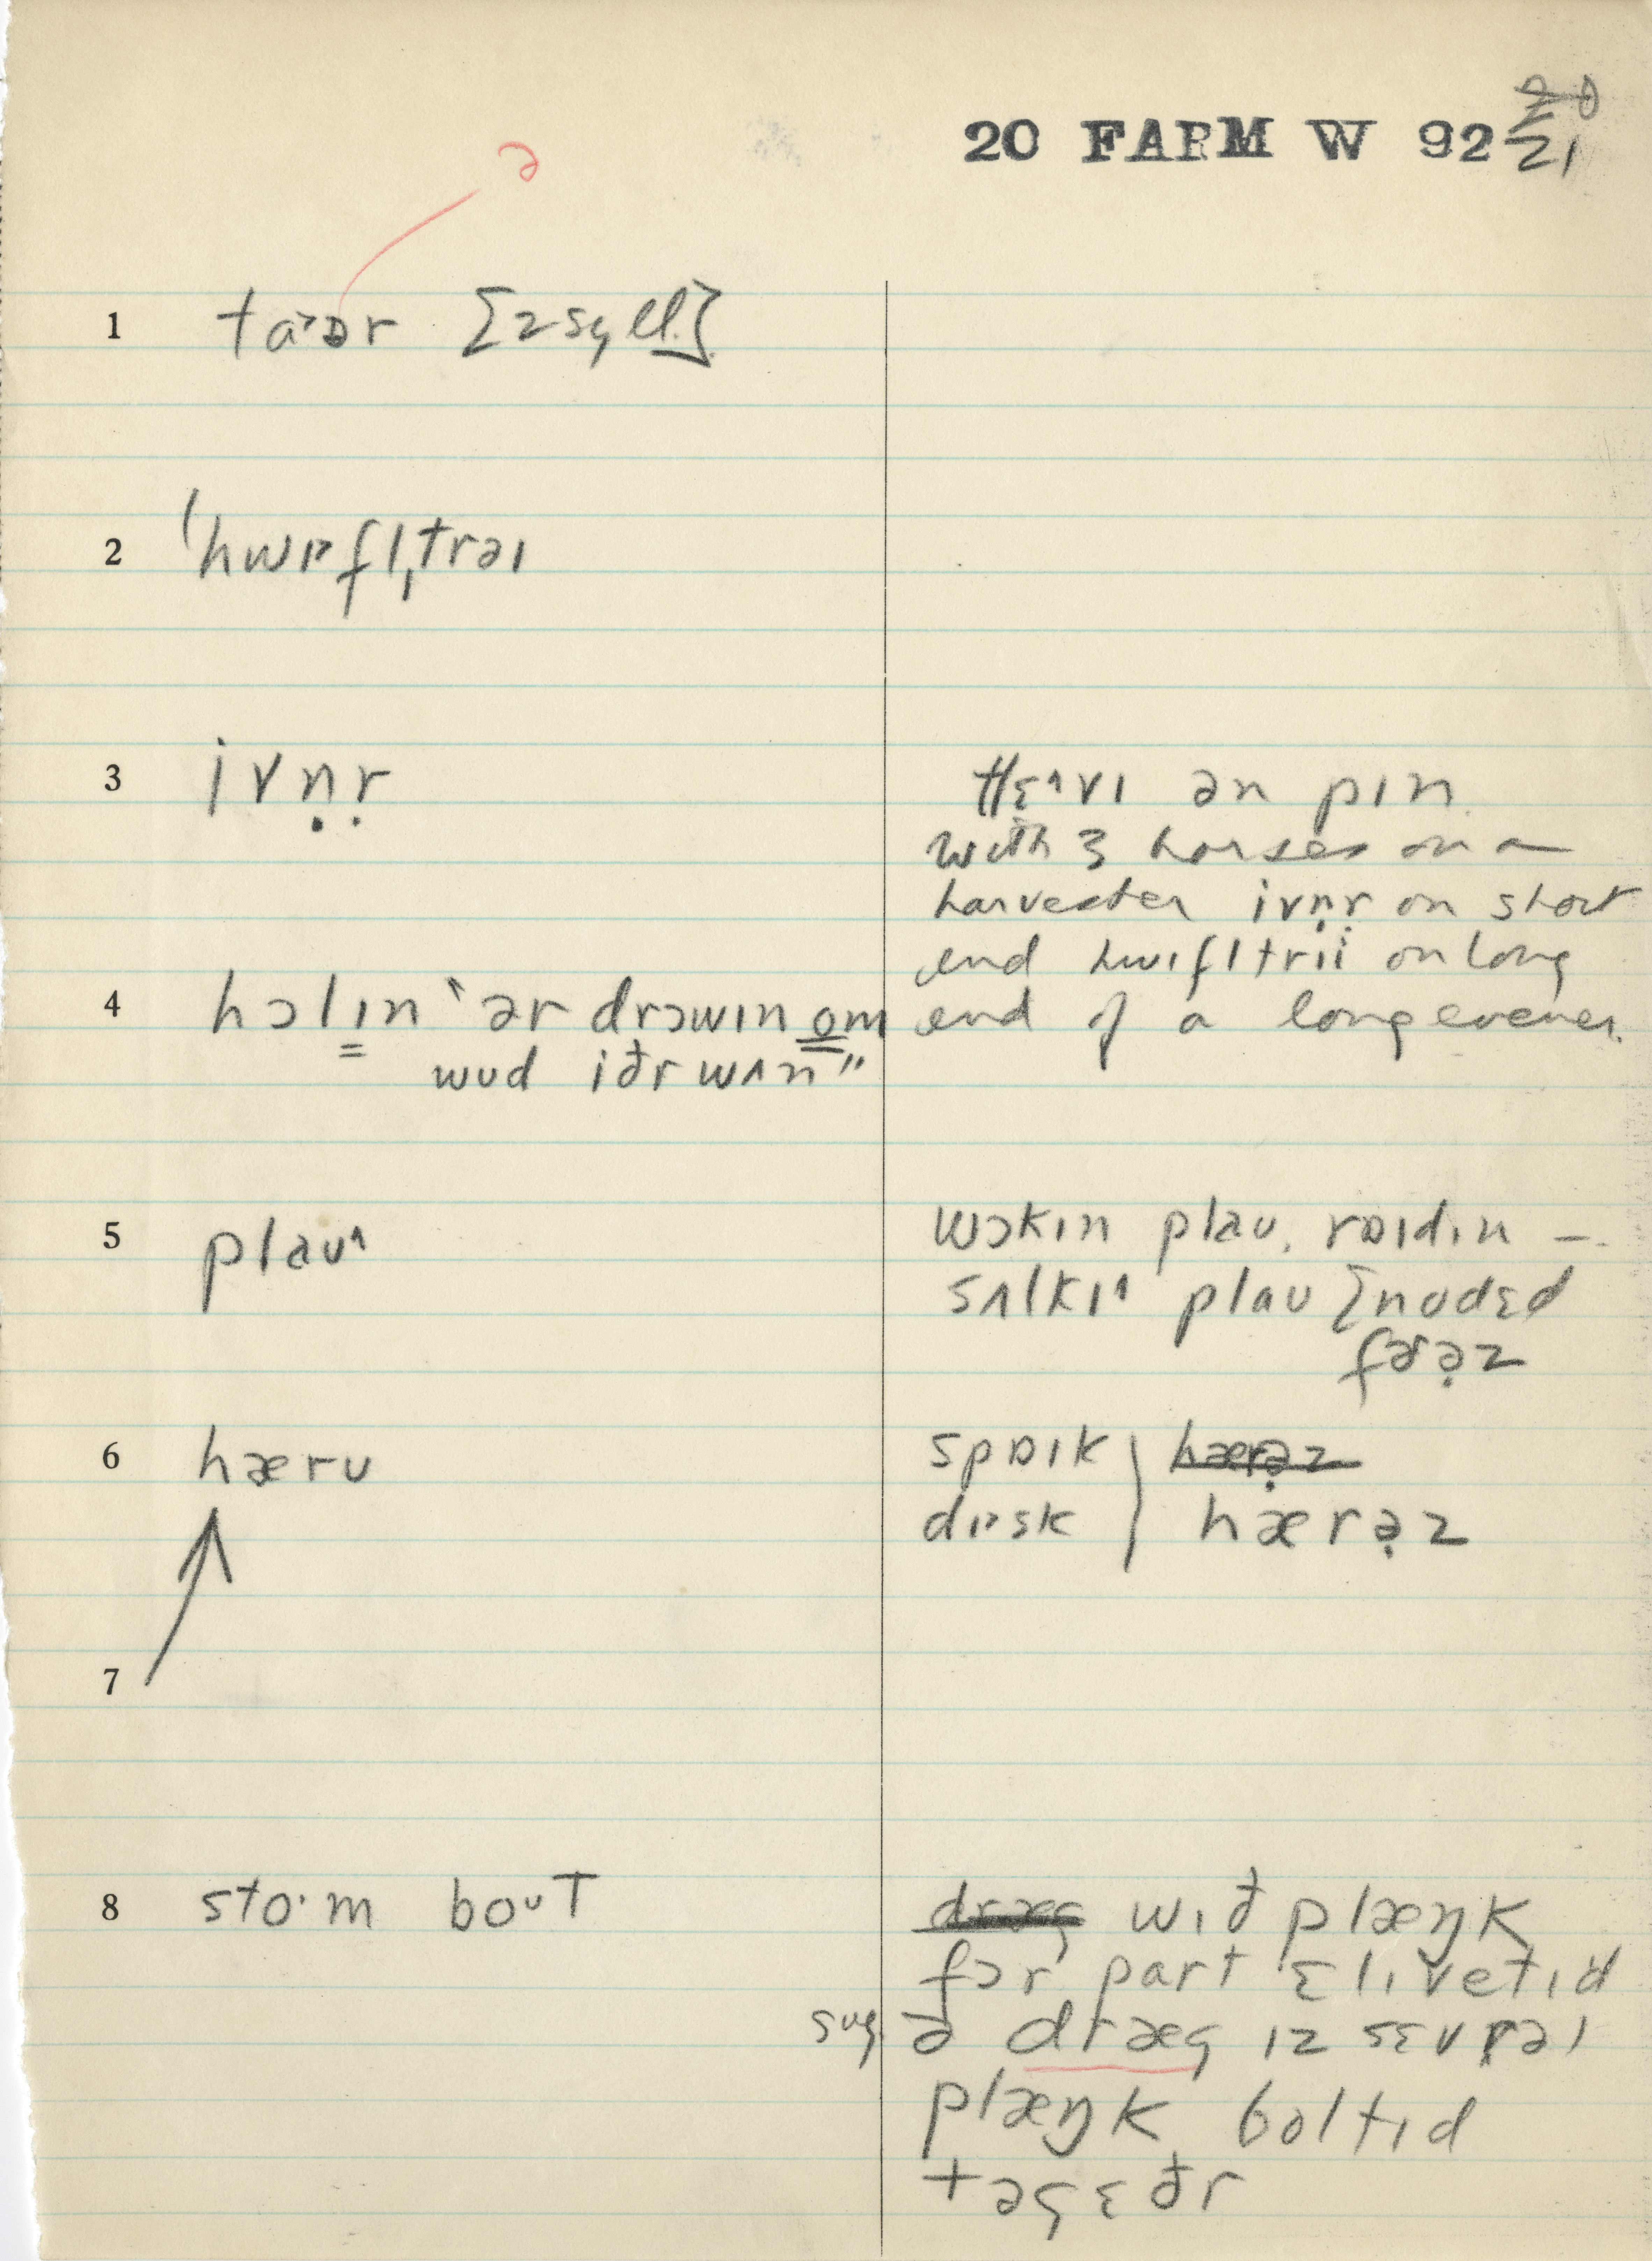 20 FARM W 92 20
21
ə
1 ta˃ɒr [2 syll.]
2 ˈhwɪ˃fl̩ˌtrəɪ
3 ivṇṛ
hɛ˄vɪ ən pɪn
with 3 horses on a
harvester ivṇṛ on short
end hwɪfltrii on long
end of a long evener.
4 hɔlɪn "ər drɔwɪn om
wud iðr wʌn"
5 plaʊ˄
wɔkɪn plaʊ, rɒɪdɪn —.
sʌlkɪ˄ plaʊ [nodɛd
fərə̣z
6 hærʊ
spɒɪk hærə̣z
dɪ˃sk hærə̣z
7
8 sto·m boᴜT
dræg wɪð plæŋk
fɔr part ɛlɪvetɪd
sug. ə dræg ɪz sɛvrəl
plæŋk boltɪd
təgɛðr